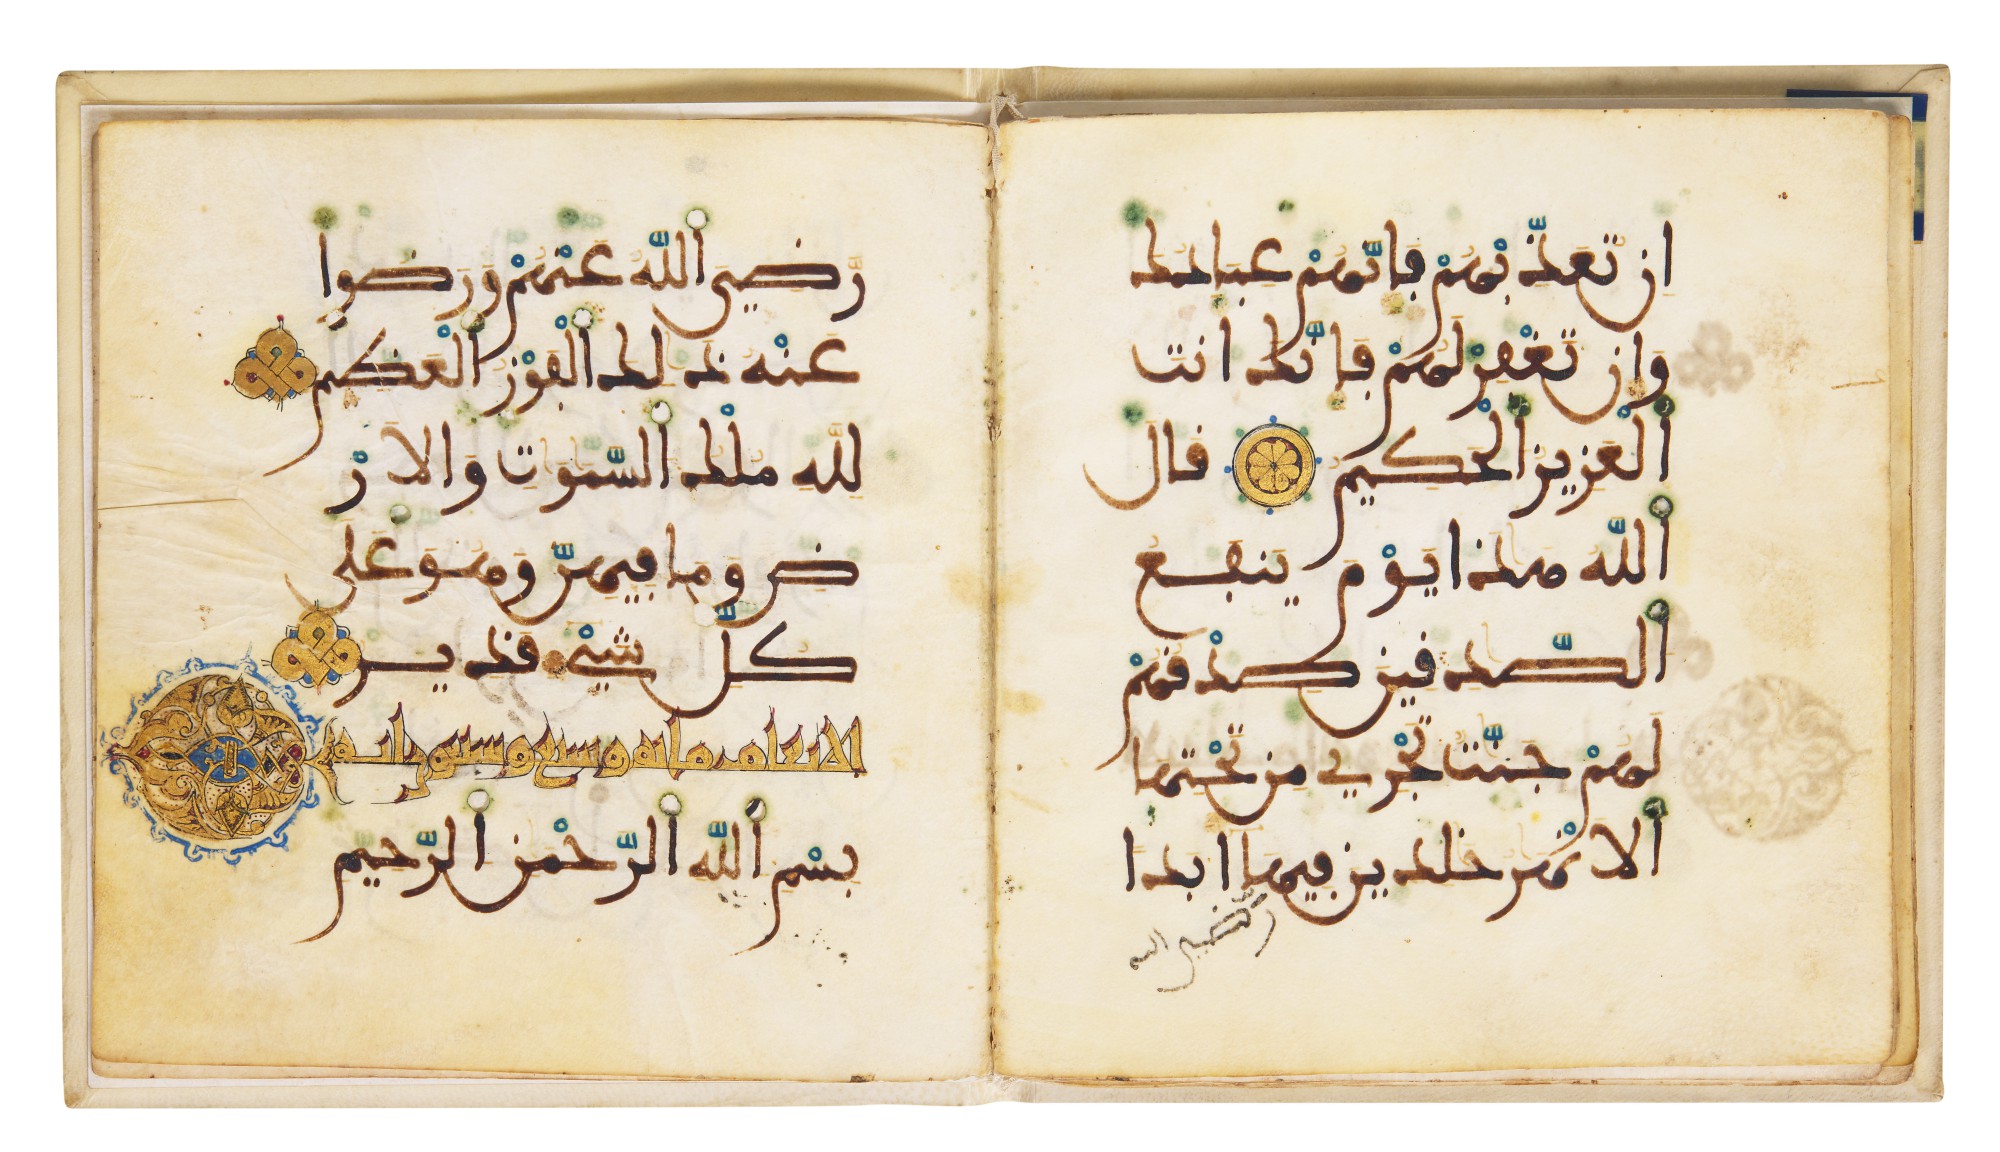 إِن تُعَذِّبْهُمْ فَإِنَّهُمْ عِبَادُكَ
وَإِن تَغْفِرْ لَهُمْ فَإِنَّكَ أَنتَ
الْعَزِيزُ الْحَكِيمُ قَالَ
اللَّهُ هَٰذَا يَوْمَ يَنفَعُ
الصَّٰدِقِينَ صِدْقُهُمْ
لَهُمْ جَنَّٰتٌ تَجْرِي مِن تَحْتِهَا
الْأَنْهَٰرُ خَٰلِدِينَ فِيهَا أَبَدًا
رضي الله
رَّضِيَ اللَّهُ عَنْهُمْ وَرَضُوا
عَنْهُ ذَٰلِكَ الْفَوْزُ الْعَظِيمُ
لِلَّهِ مُلْكُ السَّمَٰوَٰتِ وَالْأَرْ
ضِ وَمَا فِيهِنَّ وَهُوَ عَلَىٰ
كُلِّ شَيْءٍ قَدِيرٌ
الانعام مائة وسبع وستون اية
بِسْمِ اللَّهِ الرَّحْمَٰنِ الرَّحِيمِ